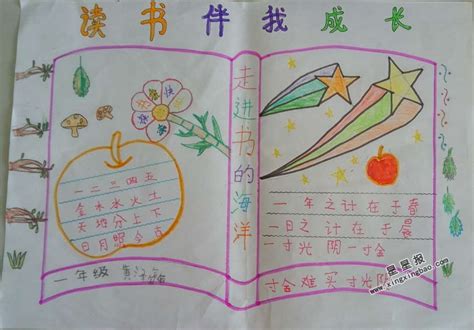 读书伴我成长
一二三四五
金木水火土
天地分上下
日月照今古
一年级
走进书的海洋
一年之计在于春
一日之计在于晨
一寸光阴一寸金
寸金难买寸光阴
星星报
www.xingxingbao.com